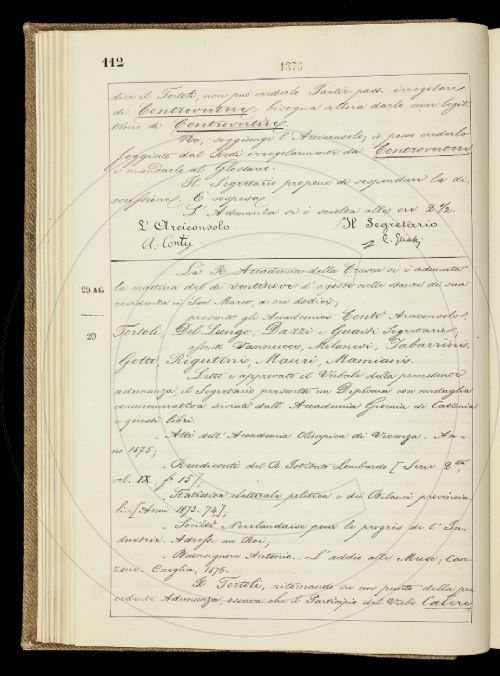 112
1876
dice il Tortoli, non può crederlo Partic. pass. irregolare
di Controvertere; bisogna allora darlo come legit
timo di Controvertire.
No, soggiunge l'Arciconsolo, io posso crederlo
foggiato dal Redi irregolarmente da Controvertere
e mandarlo al Glossario.
Il Segretario propone di sospendere la di
scussione. È sospesa.
L'Adunanza si è sciolta alle ore 2 1/2.
L'Arciconsolo Il Segretario
A. Conti C. Guasti
29 AG.
La R. Accademia della Crusca si è adunata
la mattina del dì ventinove d'agosto nelle stanze di sua
residenza in San Marco, a ore dodici;
20
presenti gli Accademici Conti Arciconsolo,
Tortoli, Del Lungo, Dazzi e Guasti Segretario,
assenti Vannucci, Milanesi, Tabarrini,
Gotti, Rigutini, Mauri, Mamiani.
Letto e approvato il Verbale della precedente
adunanza, il Segretario presenta un Diploma con medaglia
commemorativa inviati dall'Accademia Gioenia di Catania
e questi libri:
. Atti dell'Accademia Olimpica di Vicenza. An-
no 1875;
. Rendiconti del R. Istituto Lombardo [Serie 2ª,
vol. IX, f. 15];
. Statistica elettorale politica e dei Bilanci provincia
li. [Anni 1873-74];
. Société Néerlandaise pour le progrès de l'In-
dustrie. Adresse au Roi;
. Buonsignori Antonio. - L'addio alle Muse, Can-
zone. Oneglia, 1875.
Il Tortoli, ritornando su un punto della pre
cedente Adunanza, osserva che il Participio del Verbo Calere